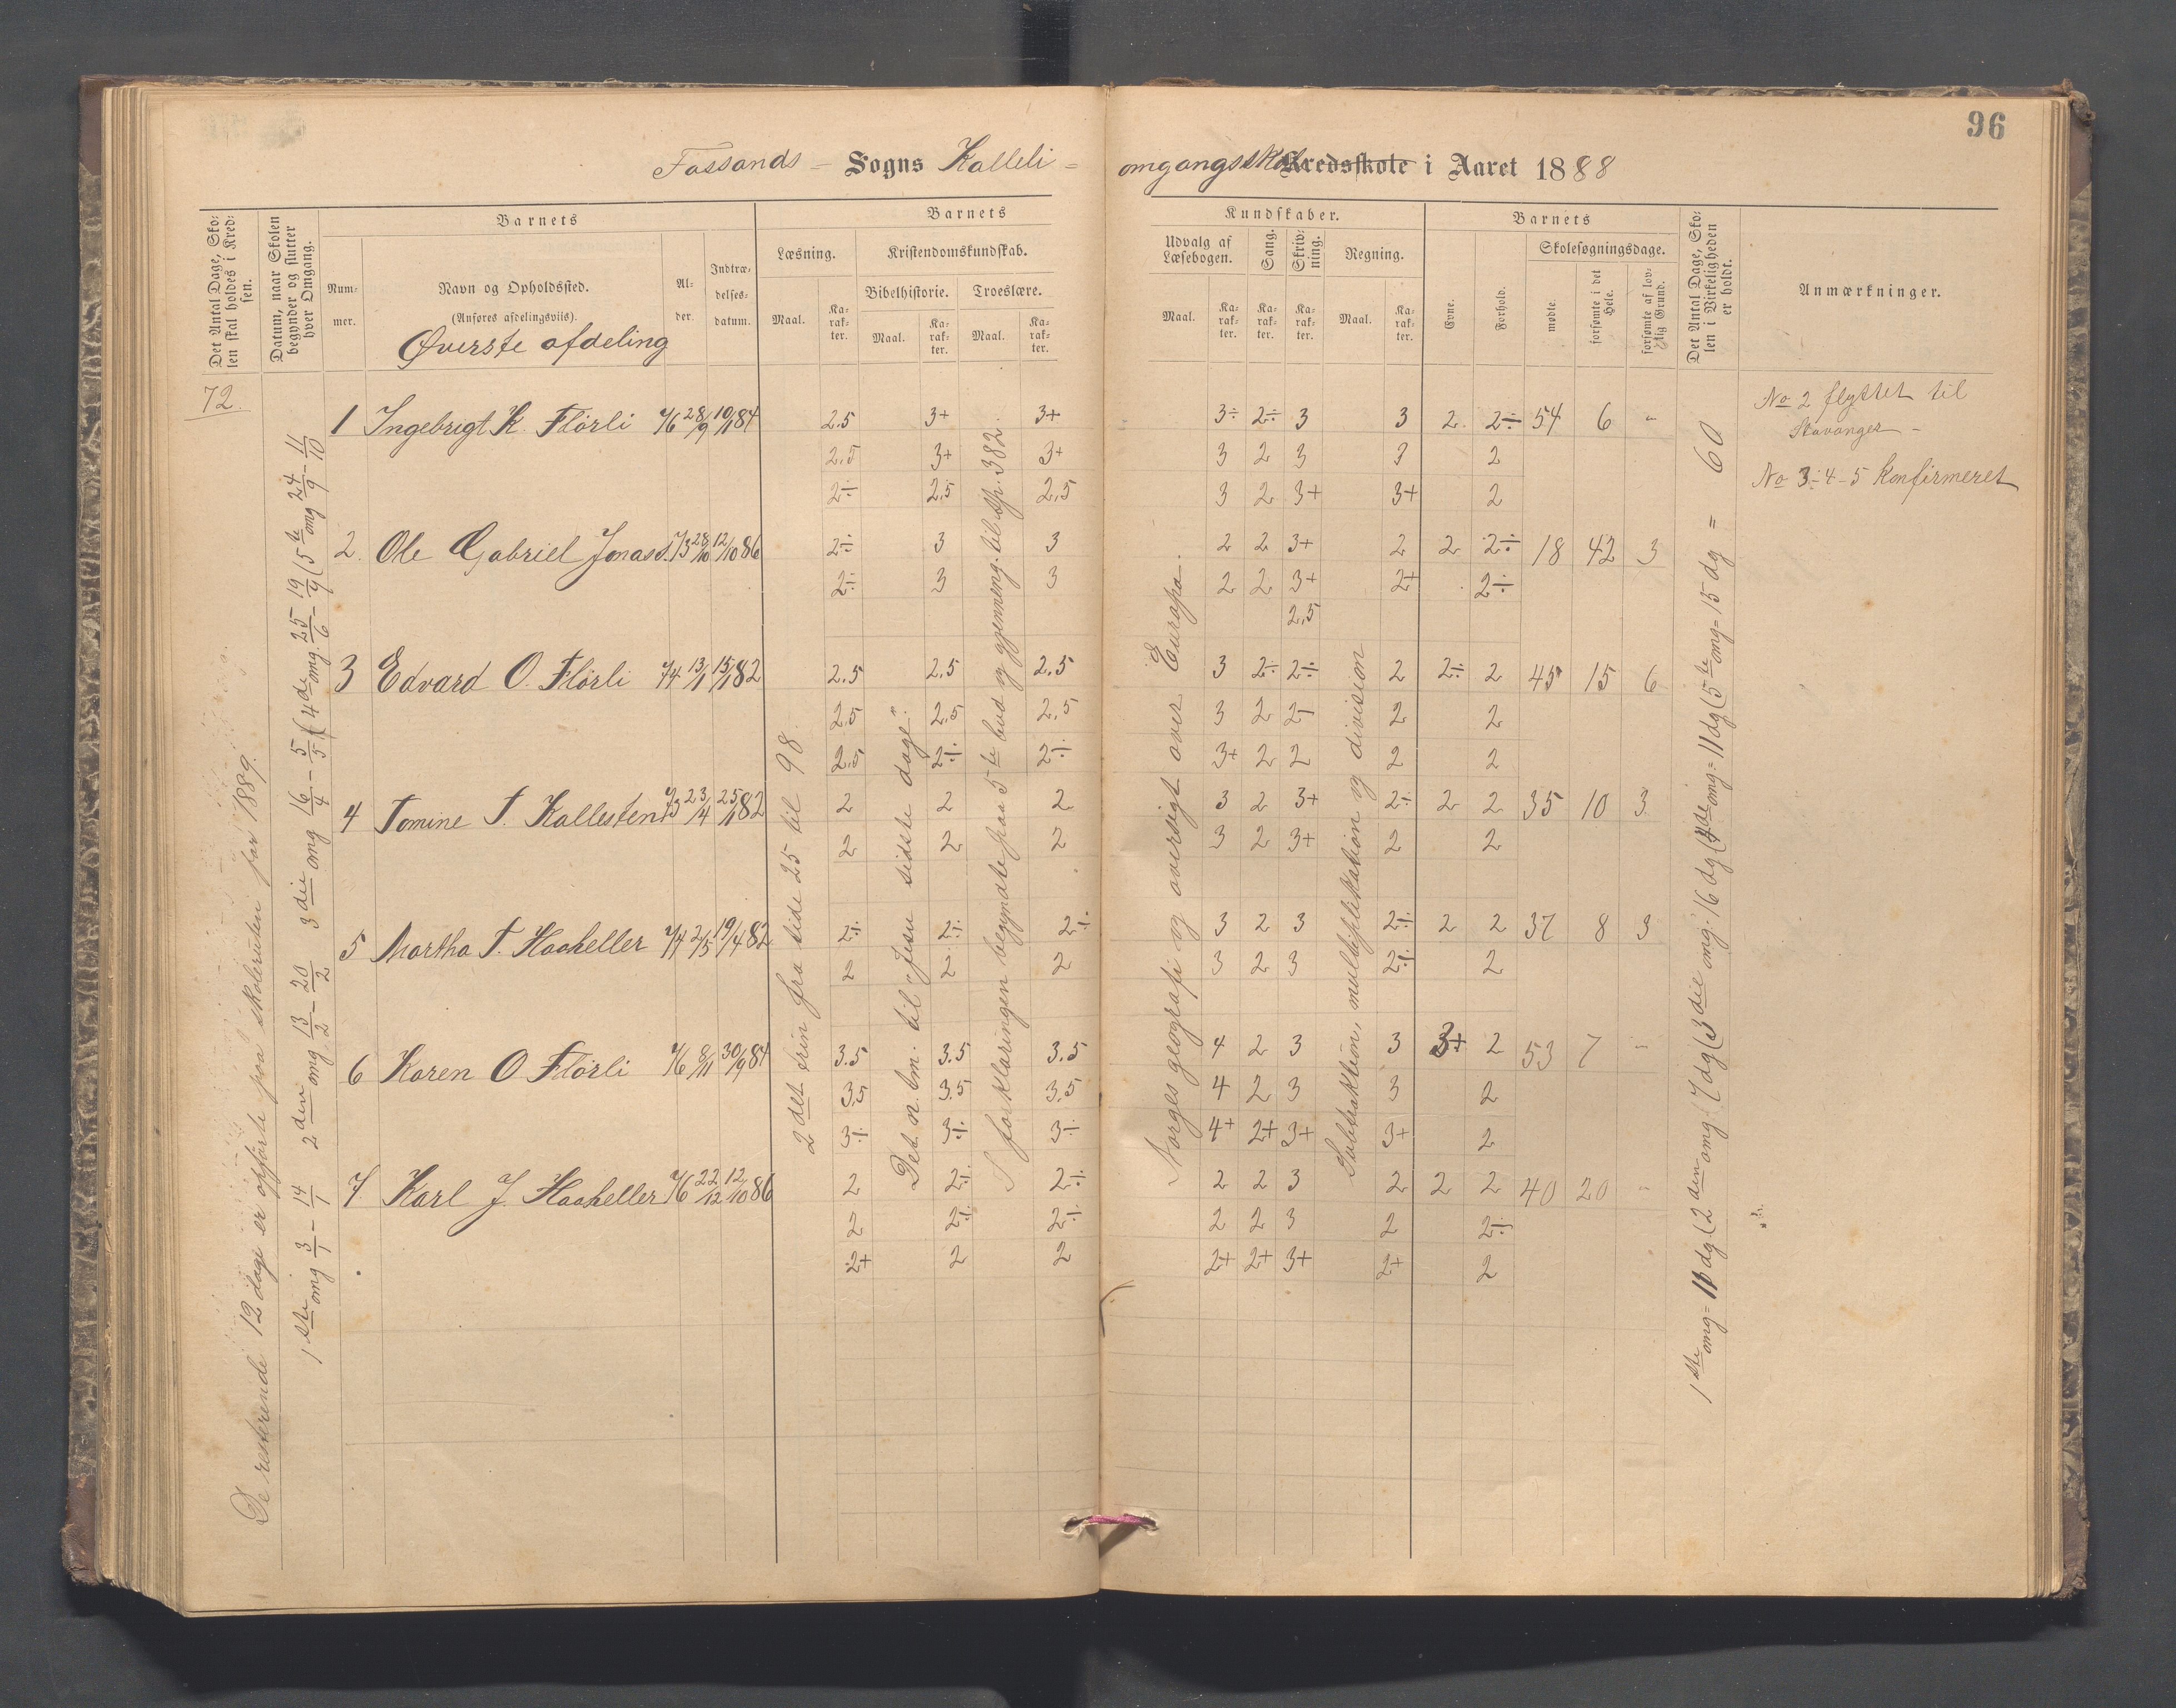 96
Fossands - Sogns Kalleli - omgangsskole Kredsskole i Aaret 1888
Det Antal Dage, Sko-
len skal holdes i Kred-
sen.
Datum, naar Skolen
begynder og slutter
hver Omgang.
Barnets
Num-
mer.
Navn og Opholdssted.
(Anføres afdelingsviis).
Øverste afdeling
Al-
der.
Indtræ-
delses-
datum.
Barnets
Læsning.
Maal.
Ka-
rak-
ter.
Kristendomskundskab.
Bibelhistorie.
Maal.
Ka-
rak-
ter.
Troeslære.
Maal.
Ka-
rak-
ter.
Kundskaber.
Udvalg af
Læsebogen.
Maal.
Ka-
rak-
ter.
Sang.
Ka-
rak-
ter.
Skriv-
ning.
Ka-
rak-
ter.
Regning.
Maal.
Ka-
rak-
ter.
Barnets
Evne.
Forhold.
Skolesøgningsdage.
mødte.
forsømte i det
Hele.
forsømte af lov-
lig Grund.
Det Antal Dage, Sko-
len i Virkeligheden
er holdt.
Anmærkninger.
72.
De resterende 12 dage er opførte på skoleruten for 1889.
1ste omg 3/1 - 14/1 2den omg 13/2 - 20/2 3die omg 16/4 - 5/5 (4de omg. 25/6 - 19/9 (5te omg 24/9 - 11/10
2det trin fra side 25 til 98.
Det n. tm. til "Jesu sidste dage".
I forklaringen begyndte fraa 5te bud og gjennemg. til sp. 382.
Norges geografi og oversigt over Europa.
Subtraktion, multiplikation og division
1ste omg = 11 dg (2den omg 7 dg (3die omg. 16 dg (4de omg = 11 dg (5te omg = 15 dg = 60
1 Ingebrigt K. Flörli 76 28/9 10/1 84 2.5 3+ 3+ 3÷ 2÷ 3 3 2. 2÷ 54 6 "
2,5 3+ 3+ 3 2 3 3 2
2÷ 2,5 2,5 3 2 3+ 3+ 2
2. Ole Gabriel Jonass. 73 28/10 12/10 86 2÷ 3 3 2 2 3+ 2 2 2÷ 18 42 3
2÷ 3 3 2 2 3+ 2+ 2÷
2,5
3 Edvard O. Flörli 74 13/1 15/1 82 2.5 2,5 2.5 3 2÷ 2÷ 2 2÷ 2 45 15 6
2.5 2,5 2,5 3 2 2÷ 2 2
2,5 2÷ 2÷ 3+ 2 2 2 2
4 Tomine T. Kallesten 73 23/4 25/1 82 2 2 2 3 2 3+ 2÷ 2 2 35 10 3
2 2 2 3 2 3+ 2 2
5 Martha T. Haaheller 74 2/5 19/4 82 2÷ 2÷ 2÷ 3 2 3 2÷ 2 2 37 8 3
2 2 2 3 2 3 2÷ 2
6 Karen O Flörli 76 8/11 30/9 84 3.5 3.5 3.5 4 2 3 3 3+ 2 53 7 "
3.5 3.5 3.5 4 2 3 3 2
3÷ 3÷ 3÷ 4+ 2+ 3+ 3+ 2
7 Karl J. Haaheller 76 22/12 12/10 86 2 2÷ 2÷ 2 2 3 2 2 2 40 20 "
2 2÷ 2÷ 2 2 3 2 2÷
2+ 2 2 2+ 2+ 3+ 2+ 2
No 2 flyttet til
Stavanger -
No 3-4-5 konfirmeret